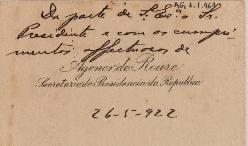 AG. 1.1.964
Da parte de S. Exª o Sr.
Presidente e com os cumpri-
mentos affectuosos de
Agenor de Roure
Secretario da Presidencia da Republica
26-5-922